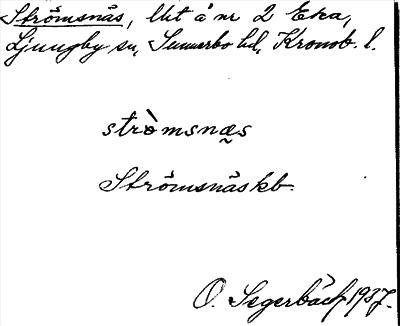 Strömsnäs, Ut å nr 2 Eka,
Ljungby sn, Sunnerbo hd, Kronob. l.
strò̀msnæ̰s
Strömsnäskb.
O. Segerbäck 1937.